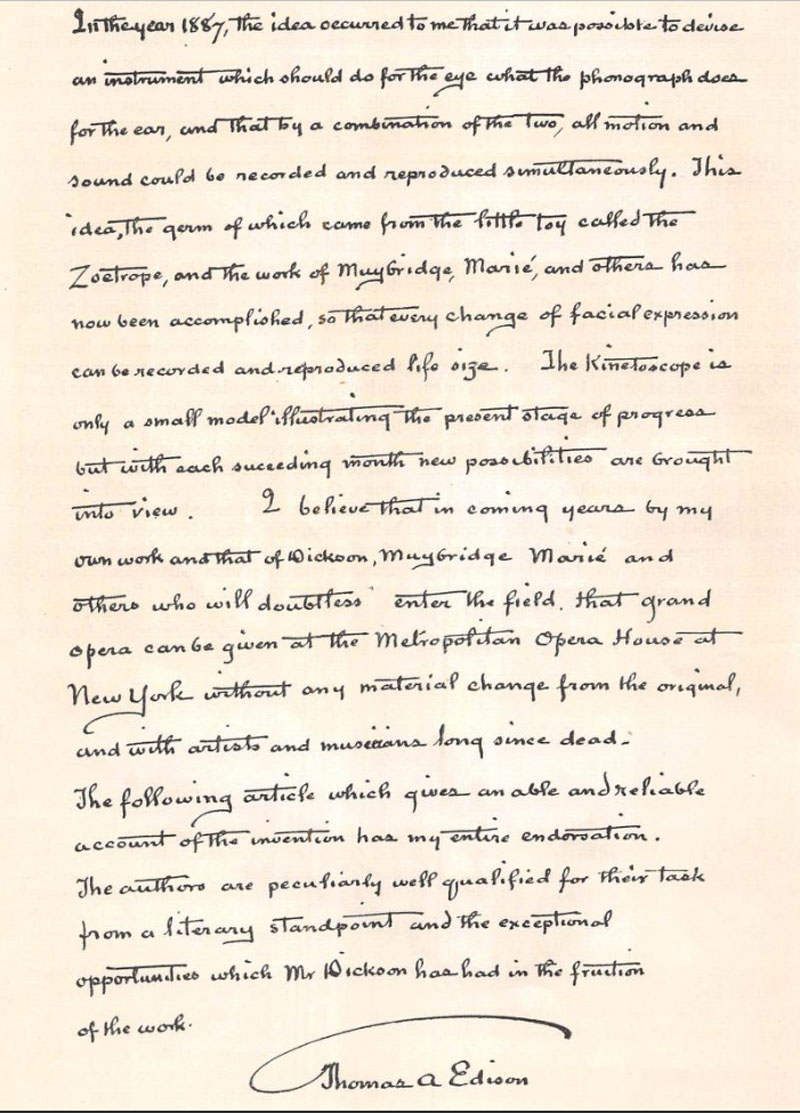 In the year 1887, the idea occurred to me that it was possible to devise
an instrument which should do for the eye what the phonograph does
for the ear, and that by a combination of the two, all motion and
sound could be recorded and reproduced simultaneously. This
idea, the germ of which came from the little toy called the
Zoetrope, and the work of Muybridge, Marié, and others has
now been accomplished, so that every change of facial expression
can be recorded and reproduced life size. The Kinetoscope is
only a small model illustrating the present stage of progress
but with each suceeding month new possibilities are brought
into view. I believe that in coming years by my
own work and that of Dickson, Muybridge Marié and
others who will doubtless enter the field. that grand
opera can be given at the Metropolitan Opera House at
New York without any material change from the original,
and with artists and musicians long since dead.
The following article which gives an able and reliable
account of the invention has my entire endorsation.
The authors are peculiarly well qualified for their task
from a literary standpoint and the exceptional
opportunities which Mr Dickson has had in the fruition
of the work.
Thomas A Edison